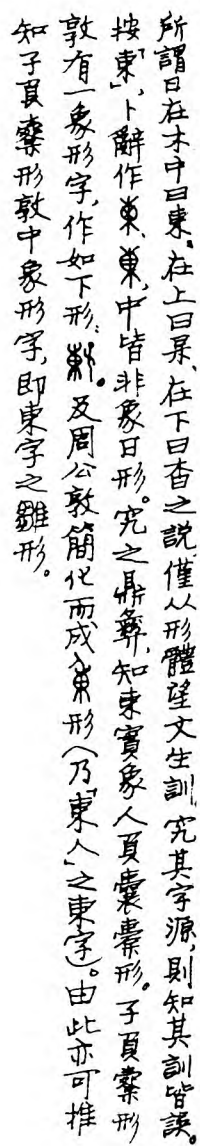 所謂日在木中曰東。在上曰杲、在下曰杳之說，僅从形體望文生訓，究其字源，則知其訓皆誤。
按「東」，卜辭作東、東，中皆非象日形。究之鼎彝，知東實象人負囊橐形。子負橐形
敦有一象形字，作如下形：。及周公敦簡化而成東形（乃「東人」之東字）。由此亦可推
知子負橐形敦中象形字，即東字之雛形。